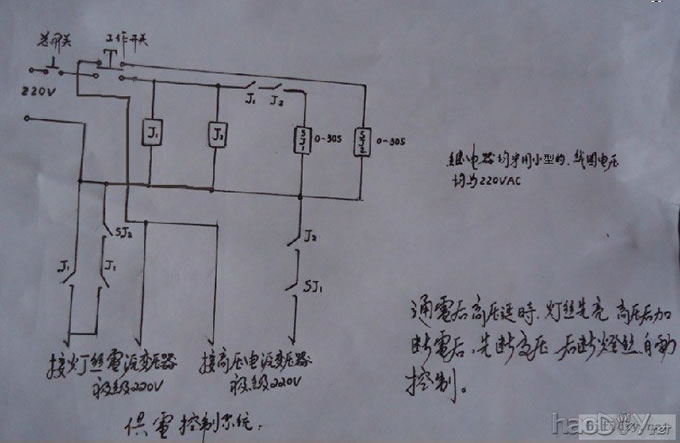 总开关 工作开关
220V
J₁ J₂
J₁ J₂ SJ1 0-30S SJ2 0-30S
继电器均采用小型的、线圈电压
均为220VAC
SJ₂ J₂
J₁ J₁ SJ₁
通電后高压延时.灯丝先亮 高压后加
断電后,先断高压 后断燈丝自動
控制。
接灯丝電流变压器 接高压电流变压器
初级220V 初级220V
供電控制系统.